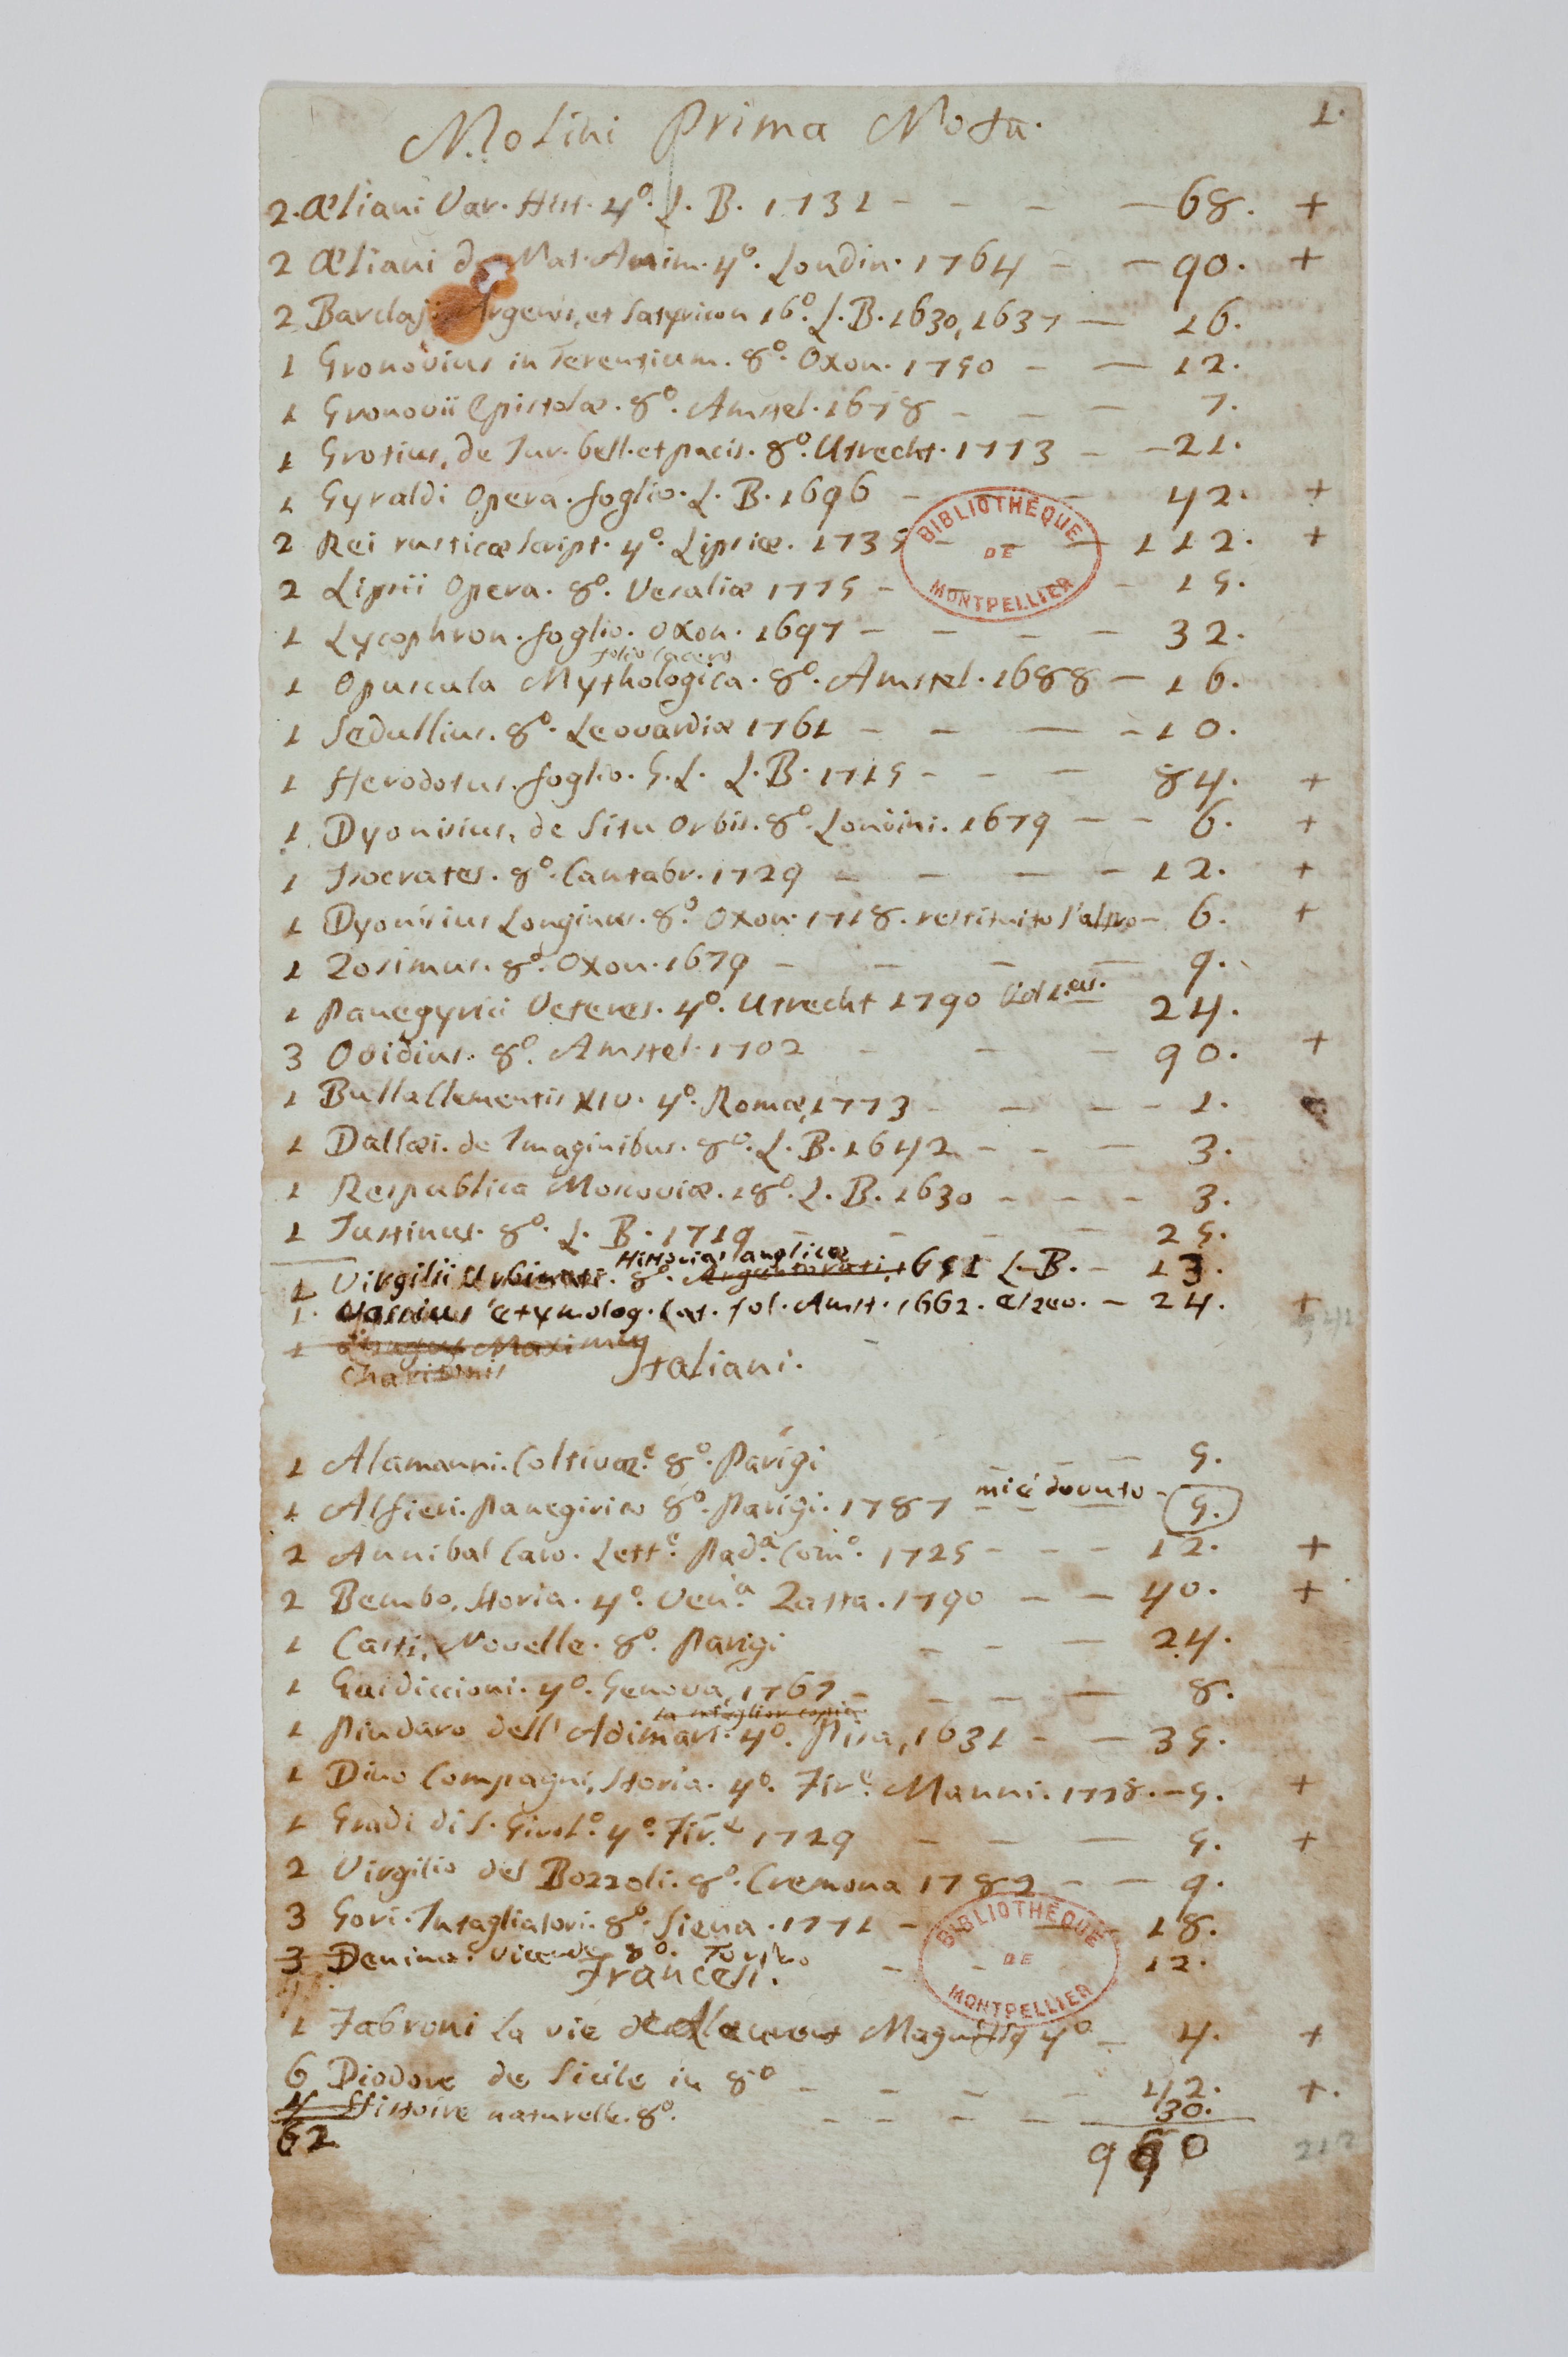 1.
Molini Prima Nota.
2. Æliani Var. Hist. 4º. L. B. 1731 - - - - 68. +
2 Æliani de Nat. Anim. 4º. Londin. 1764 - - 90. +
2 Barclaji Argenis, et Satyricon 16º. L. B. 1630, 1637 - 16.
1 Gronovius in Terentium. 8º. Oxon. 1750 - - 12.
1 Gronovii Epistolæ. 8º. Amstel. 1678 - - - 7.
1 Grotius, de Jur. bell. et pacis. 8º. Utrecht. 1773 - - 21.
1 Gyraldi Opera. foglio. L. B. 1696 - - - 42. +
2 Rei rusticæ Script. 4º. Lipsiæ. 1735 - - - 112. +
BIBLIOTHEQUE DE MONTPELLIER
2 Lipsii Opera. 8º. Vesaliæ 1775 - - 15.
1 Lycophron. foglio. Oxon. 1697 - - - - 32.
folio lacero
1 Opuscula Mythologica. 8º. Amstel. 1688 - 16.
1 Sedullius. 8º. Leovardiæ 1761 - - - - 10.
1 Herodotus. foglio. G. L. L. B. 1715 - - - 84. +
1 Dyonisius, de Situ Orbis. 8º. Londini. 1679 - - 6. +
1 Isocrates. 8º. Cantabr. 1729 - - - - 12. +
1 Dyonisius Longinus. 8º. Oxon. 1718. restituito l'altro - 6. +
1 Zosimus. 8º. Oxon. 1679 - - - - 9.
1 Panegyrici Veteres. 4º. Utrecht 1790 24.
3 Ovidius. 8º. Amstel. 1702 - - - 90. +
1 Bulla Clementis XIV. 4º. Romæ, 1773 - - - - 1.
1 Dallæi. de Imaginibus. 8º. L. B. 1642 - - - 3.
1 Respublica Moscoviæ. 18º. L. B. 1630 - - - - 3.
1 Justinus. 8º. L. B. 1719 - - - - 25.
Historiæ anglicæ
1 Virgilii Urbinati. 8º. Argentorati, 1651 L. B. - 13.
1. Vossius Etymolog. Lat. fol. Amst. 1662. Elzev. - 24. +
1 Maximus
Italiani.
1 Alamanni. Coltivaz.e 8º. Parigi - - - 5.
1 Alfieri. Panegirico 8º. Parigi. 1787 mi è dovuto - 5.
2 Annibal Caro. Lett.e Pad.a Com.o 1725 - - - 12. +
2 Bembo, Storia. 4º. Ven.a Zatta. 1790 - - 40. +
1 Casti, Novelle. 8º. Parigi - - - 24.
1 Guidiccioni. 4º. Genova, 1767 - - - - 8.
la miglior copia
1 Pindaro dell' Adimari. 4º. Pisa, 1631 - - 35.
1 Dino Compagni, Storia. 4º. Fir.e Manni. 1728. - 5. +
1 Gradi di S. Girol.o 4º. Fir.e 1729 - - - 5. +
2 Virgilio del Bozzoli. 8º. Cremona 1782 - - 9.
3 Gori. Intagliatori. 8º. Siena. 1771 - - 18.
BIBLIOTHEQUE DE MONTPELLIER
3 Denina. Vicende 8º. Torino - - 12.
Francesi.
1 Fabroni La vie de Laurent Magnifiq 4º - 4. +
6 Diodore de Sicile in 8º - - - - 42. +.
4 Histoire naturelle. 8º. - - - - 30.
62 960